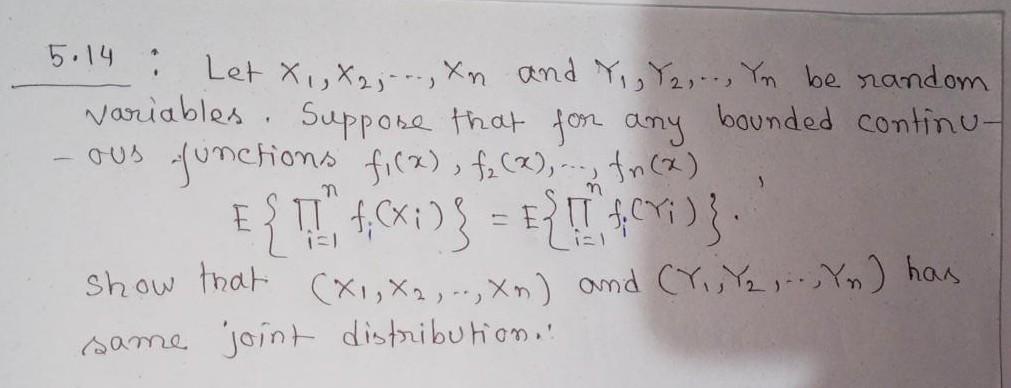 5.14 : Let X₁, X₂, ---, Xn and Y₁, Y₂, --, Yn be random
variables. Suppose that for any bounded continu-
- ous functions f₁(x), f₂(x), ---, fn(x),
E { ∏ᵢ₌₁ⁿ fᵢ(Xi) } = E { ∏ᵢ₌₁ⁿ fᵢ(Yi) }.
Show that (X₁, X₂, --, Xn) and (Y₁, Y₂, --, Yn) has
same joint distribution.